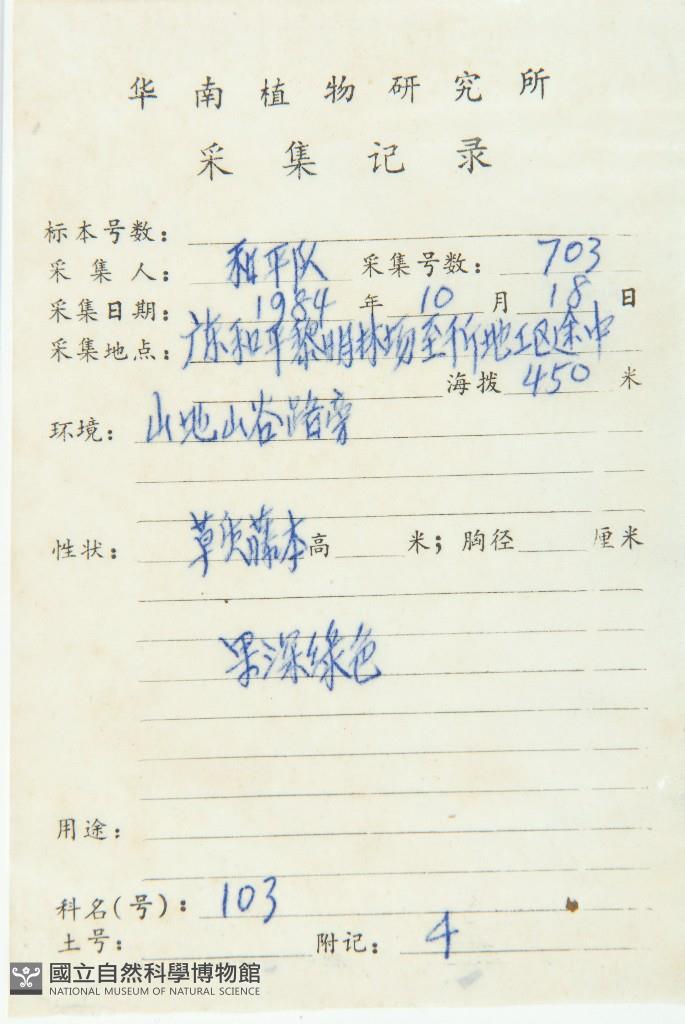 华南植物研究所
采集记录
标本号数:
采集人: 和平队 采集号数: 703
采集日期: 1984 年 10 月 18 日
采集地点: 广东和平黎明林场至 地 区途中
海拨 450 米
环境: 山地山谷路旁
性状: 草质藤本 高 米; 胸径 厘米
果深绿色
用途:
科名(号): 103
土号: 附记: 4
國立自然科學博物館
NATIONAL MUSEUM OF NATURAL SCIENCE